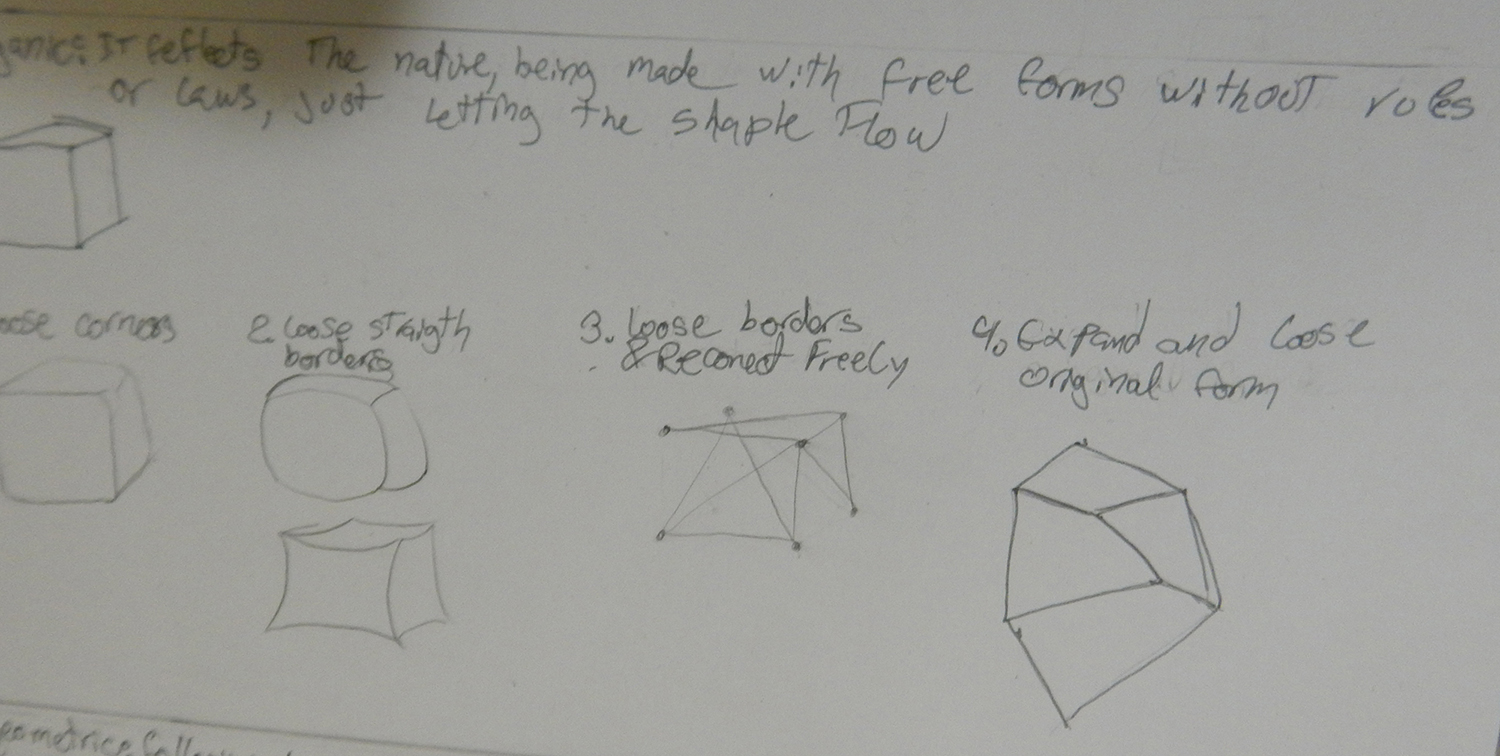 ganic: IT reflects The nature, being made with free forms without roles
or laws, just letting the shaple Flow
oose corners
2. loose straigth
borders
3. loose borders
& Reconect Freely
4. Expand and loose
original form
eometrice